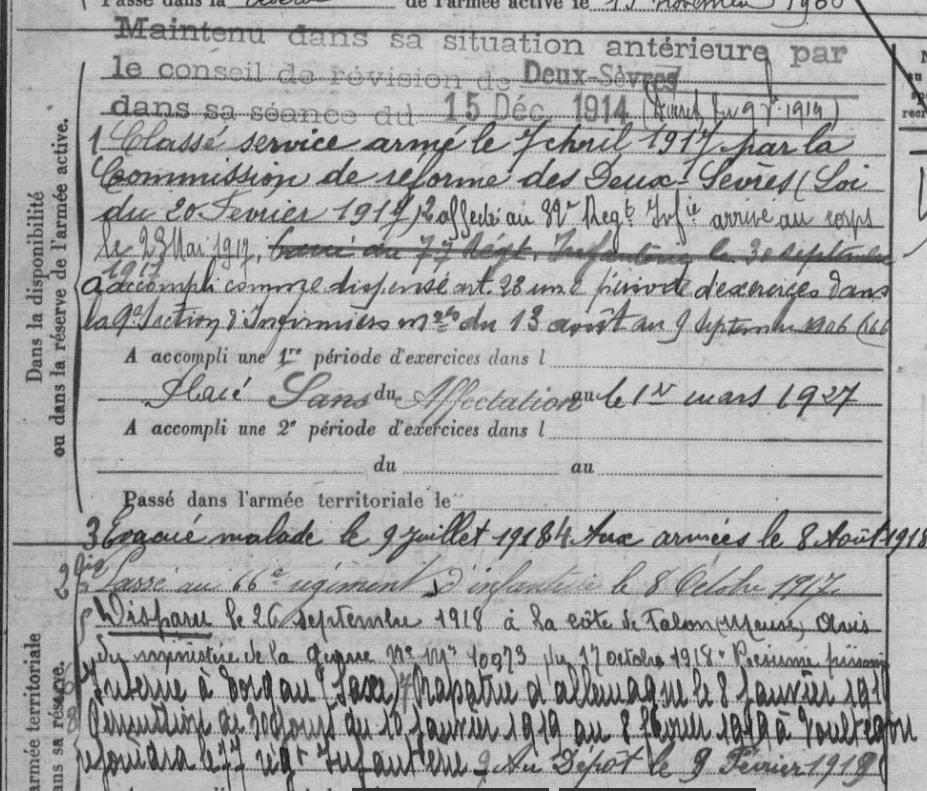 Passé dans la réserve de l'armée active le 15 novembre 1906
Maintenu dans sa situation antérieure par
le conseil de révision de Deux-Sèvres
dans sa séance du 15 Déc. 1914
1 Classé service armé le 7 avril 1917 par la
Commission de réforme des Deux-Sèvres (Loi
du 20 Février 1917) 2 affecté au Régt Infie arrivé au corps
le 23 Mai 1917. Passé au 77 Régt. Infanterie le 30 septembre
1917
a accompli comme dispensé art. 23 une période d'exercices dans
la 9e Section d'Infirmiers mres du 13 août au 9 septembre 1906
Dans la disponibilité
ou dans la réserve de l'armée active.
A accompli une 1re période d'exercices dans l
Placé Sans du Affectation au le 1er mars 1927
A accompli une 2e période d'exercices dans l
du au
Passé dans l'armée territoriale le
3 Evacué malade le 9 juillet 1918 4 Aux armées le 8 Août 1918
2 bis Passé au 66e régiment d'infanterie le 8 Octobre 1917
5 Disparu le 26 septembre 1918 à la côte de Talon (Meuse) Avis
du ministère de la guerre No 10973 du 17 octobre 1918. Présumé
Interné à Torgau (Saxe) 7 Rapatrié d'allemagne le 8 Janvier 191
8 Permission de 30 jours du 10 Janvier 1919 au 8 février 1919 à Voultegon
rejoindra le 77 régt Infanterie 9 Au Dépôt le 9 Février 1919
armée territoriale
ans sa réserve.